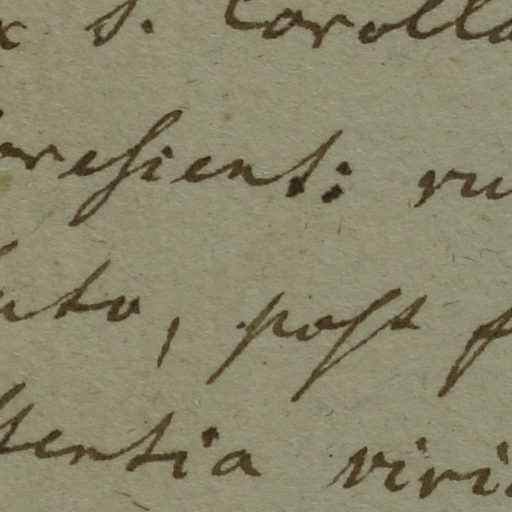 s. Coroll
oresient: ru
ato, post p
stentia viri